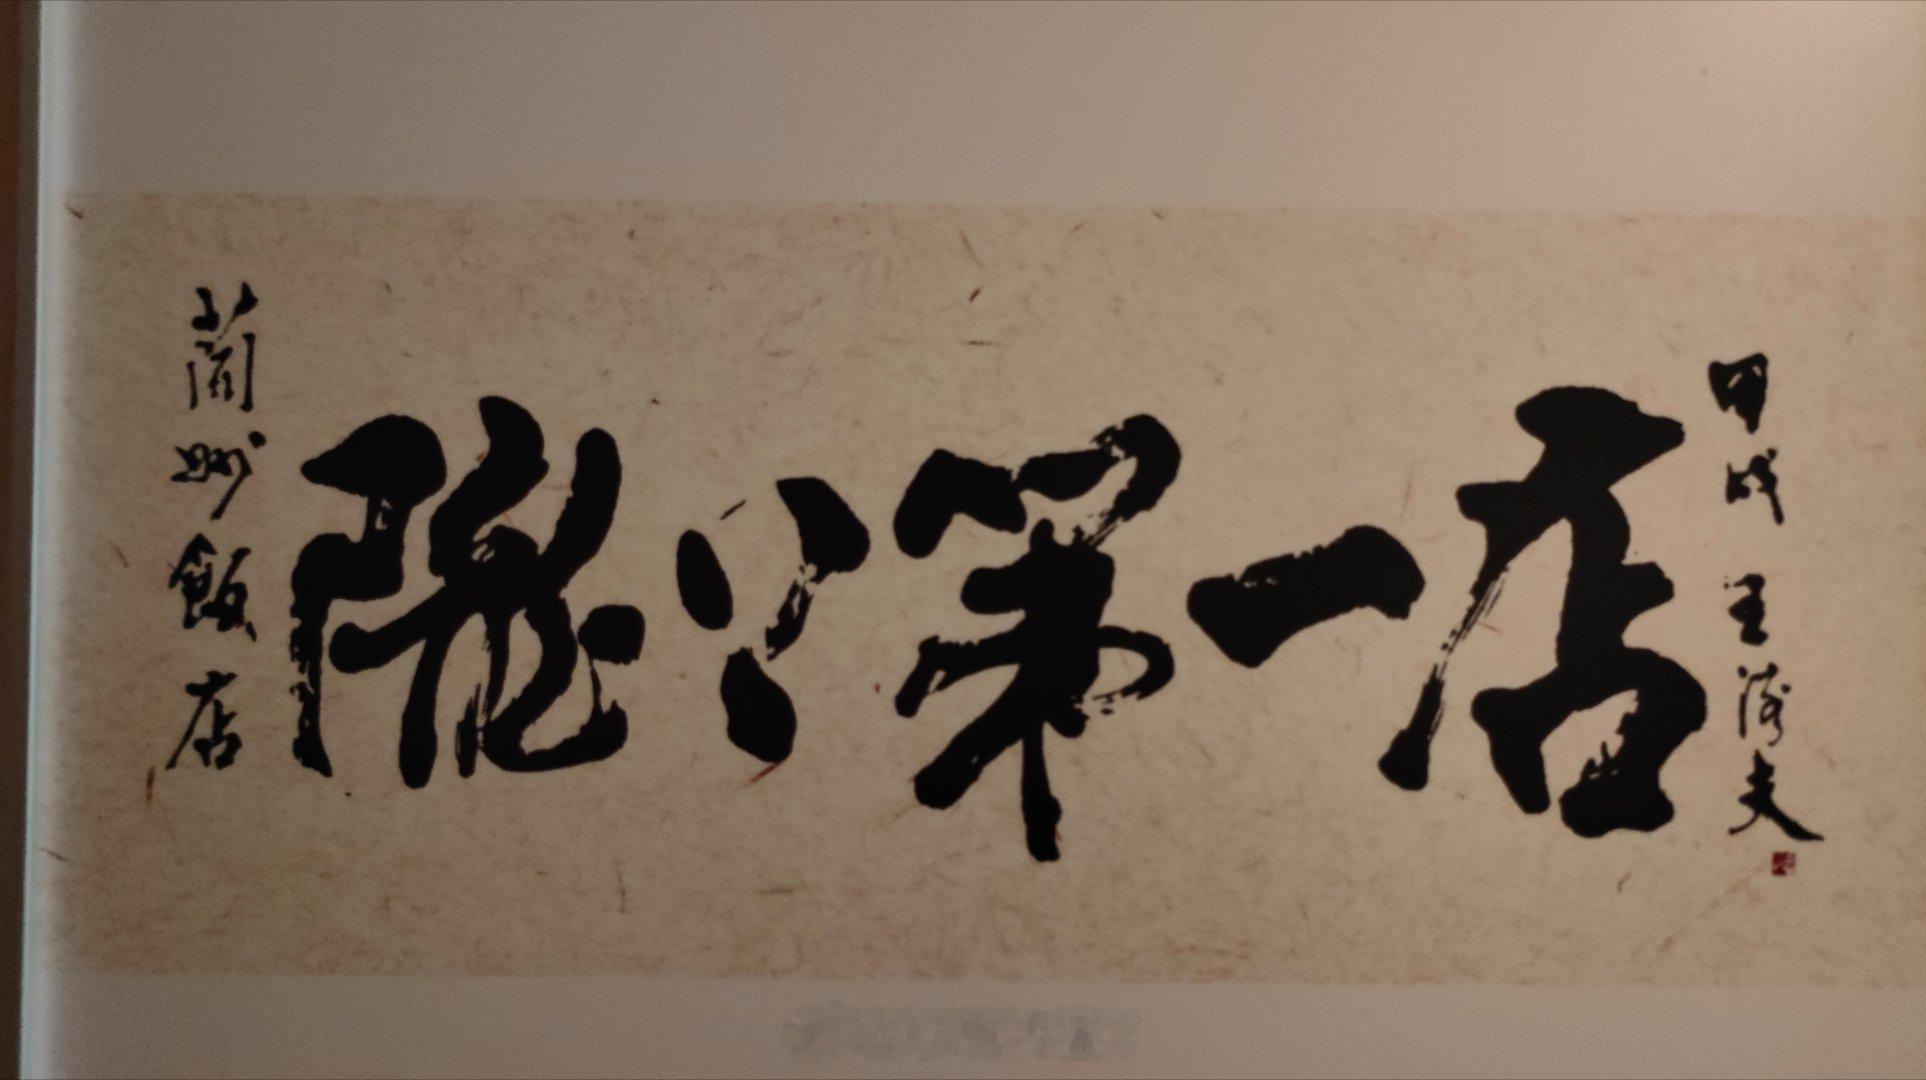 蘭州飯店
隴 第一店
甲戌 王 夫